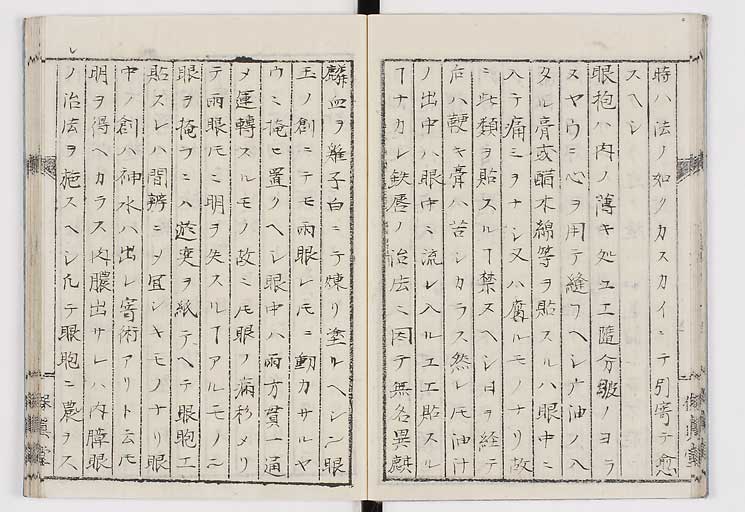 時ハ法ノ如クカスカイニテ引寄テ愈
スヘシ
眼抱ハ肉ノ薄キ処ユエ随分皺ノヨラ
ヌヤウニ心ヲ用テ縫フヘシ尤油ノ入
タル膏或醋木綿等ヲ貼スルハ眼中ニ
入テ痛ミヲナシ又ハ腐ルモノナリ故
ニ此類ヲ貼スルヿ禁スヘシ日ヲ経テ
后ハ硬キ膏ハ苦シカラス然レ𪜈油汁
ノ出中ハ眼中ニ流レ入ルユエ貼スル
ヿナカレ鉄唇ノ治法ニ因テ無名異麒
麟血ヲ雞子白ニテ煉リ塗ルヘシ眼
玉ノ創ニテモ両眼レモニ動カサルヤ
ウニ掩ヒ置クヘシ眼中ハ両方貫一通
メ運轉スルモノ故ニ𪜈眼ノ病杉メリ
テ両眼𪜈ニ明ヲ失スルヿアルモノ
眼ヲ掩フニハ遊奕ヲ紙テヘテ眼胞エ
貼スレハ間辨ニメ宜シキモノナリ眼
中ノ創ハ神水ハ出レ寄術アリト云𪜈
明ヲ得ヘカラス内膿出サレハ内障眼
ノ治法ヲ施スヘシ凡テ眼胞ニ農ヲス